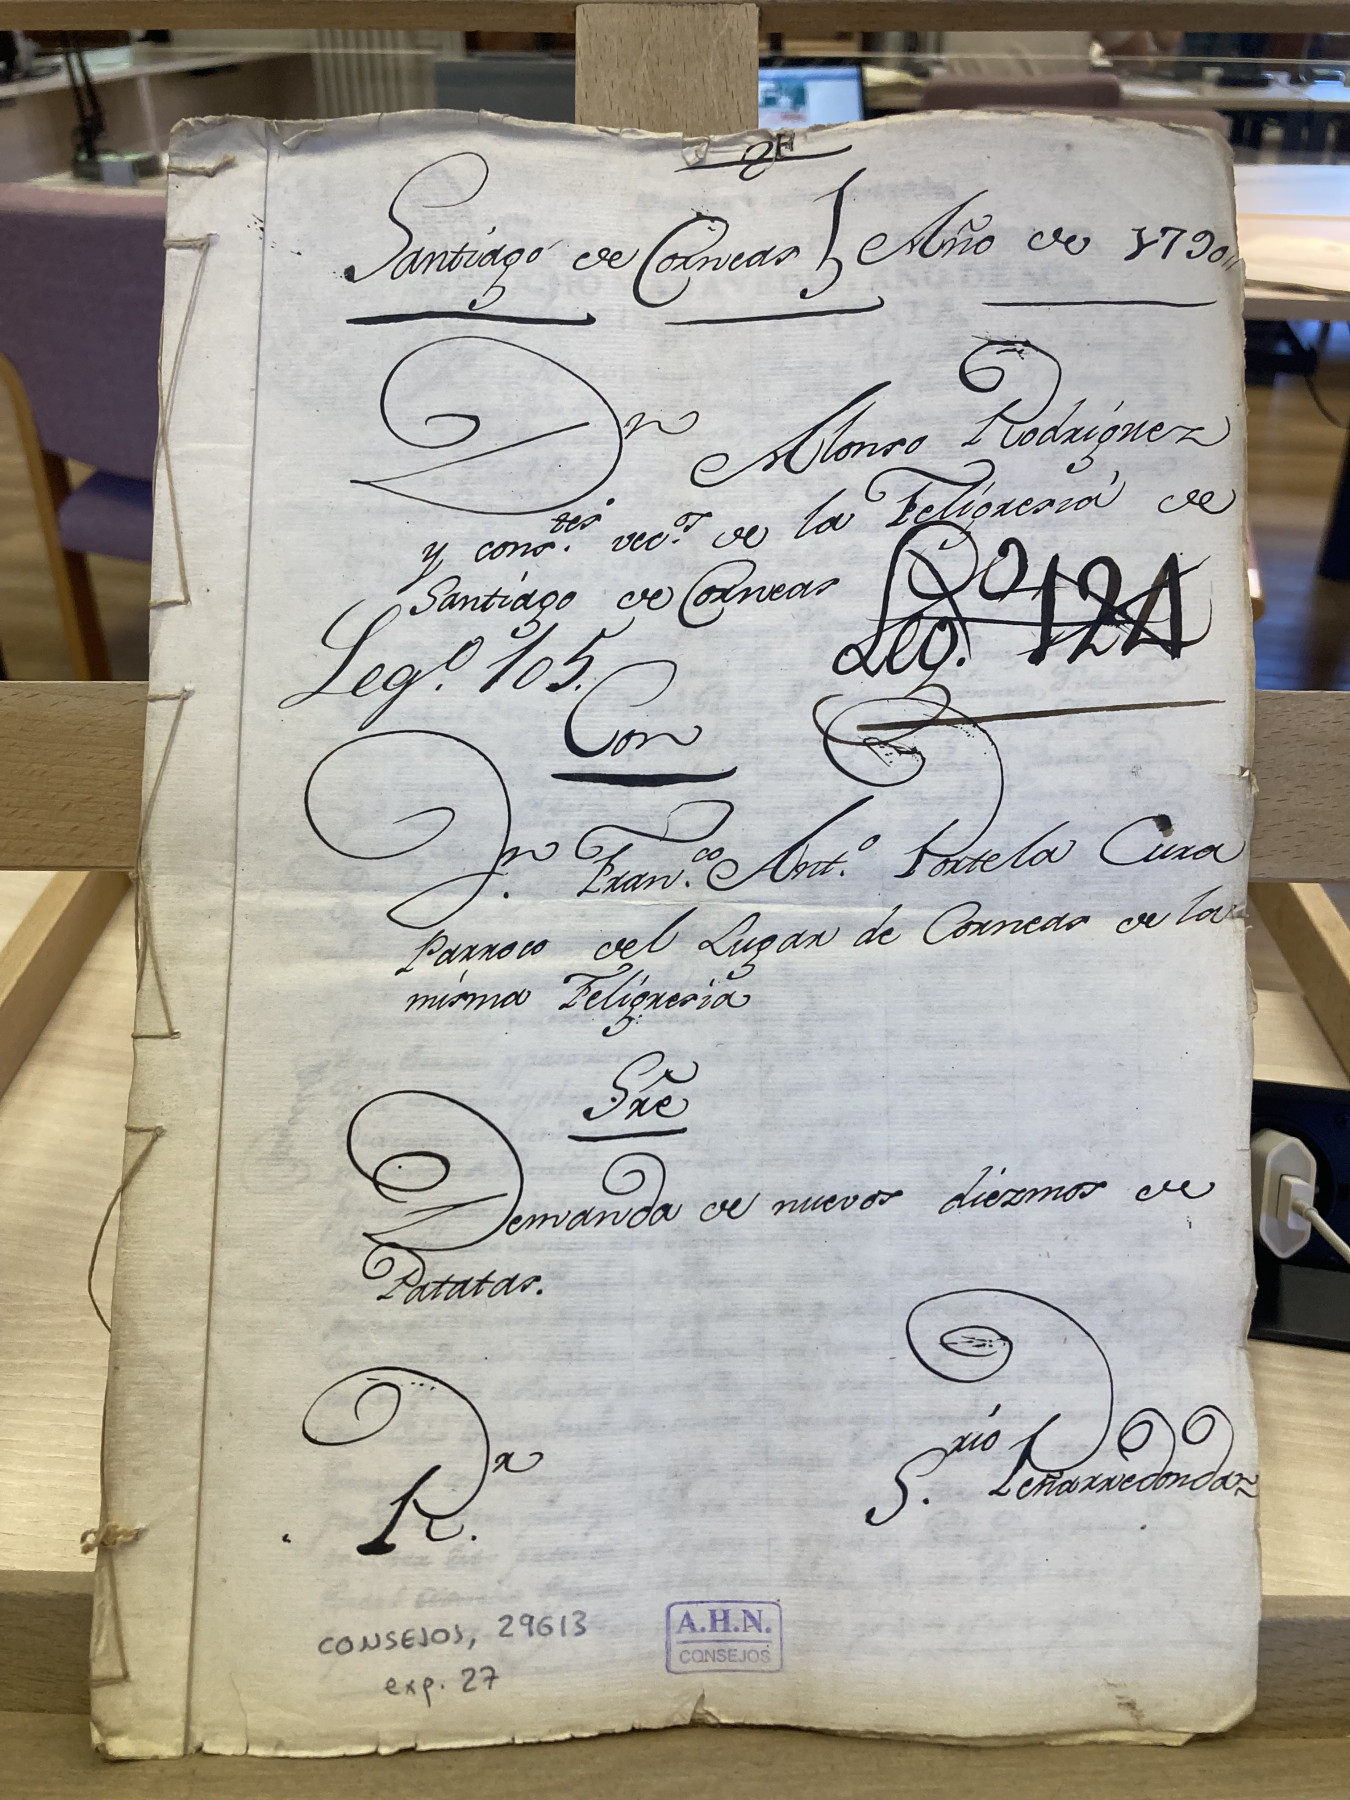 Santiago de Corneas } Año de 1790
Dn Alonso Rodriguez
y cons.tes vec.os de la Feligresia de
Santiago de Corneas
Leg. 124
Leg.o 105.
Con
Dn Fran.co Ant.o Portela Cura
Parroco del Lugar de Corneas de la
misma Feligresia
Sre
Demanda de nuevos diezmos de
Patatas.
R.
S.rio Peñarredonda
CONSEJOS, 29613
exp. 27
A.H.N.
CONSEJOS